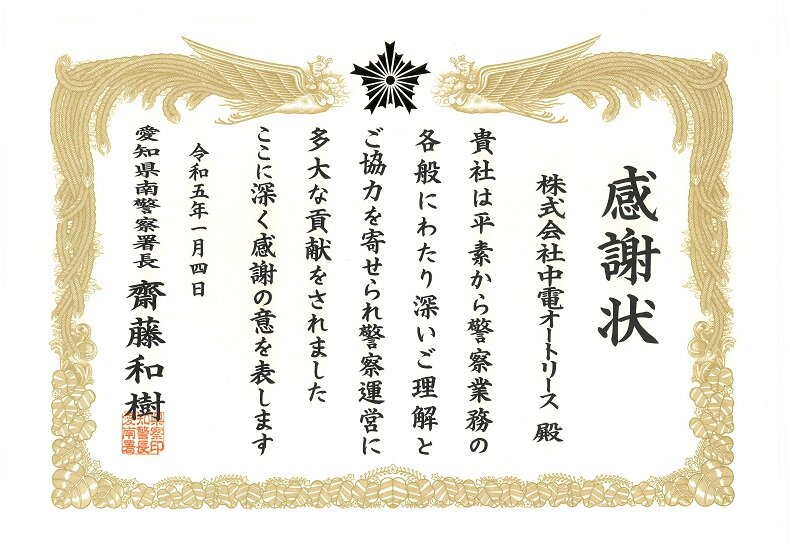 感謝状
株式会社中電オートリース 殿
貴社は平素から警察業務の
各般にわたり深いご理解と
ご協力を寄せられ警察運営に
多大な貢献をされました
ここに深く感謝の意を表します
令和五年一月四日
愛知県南警察署長 齋藤和樹